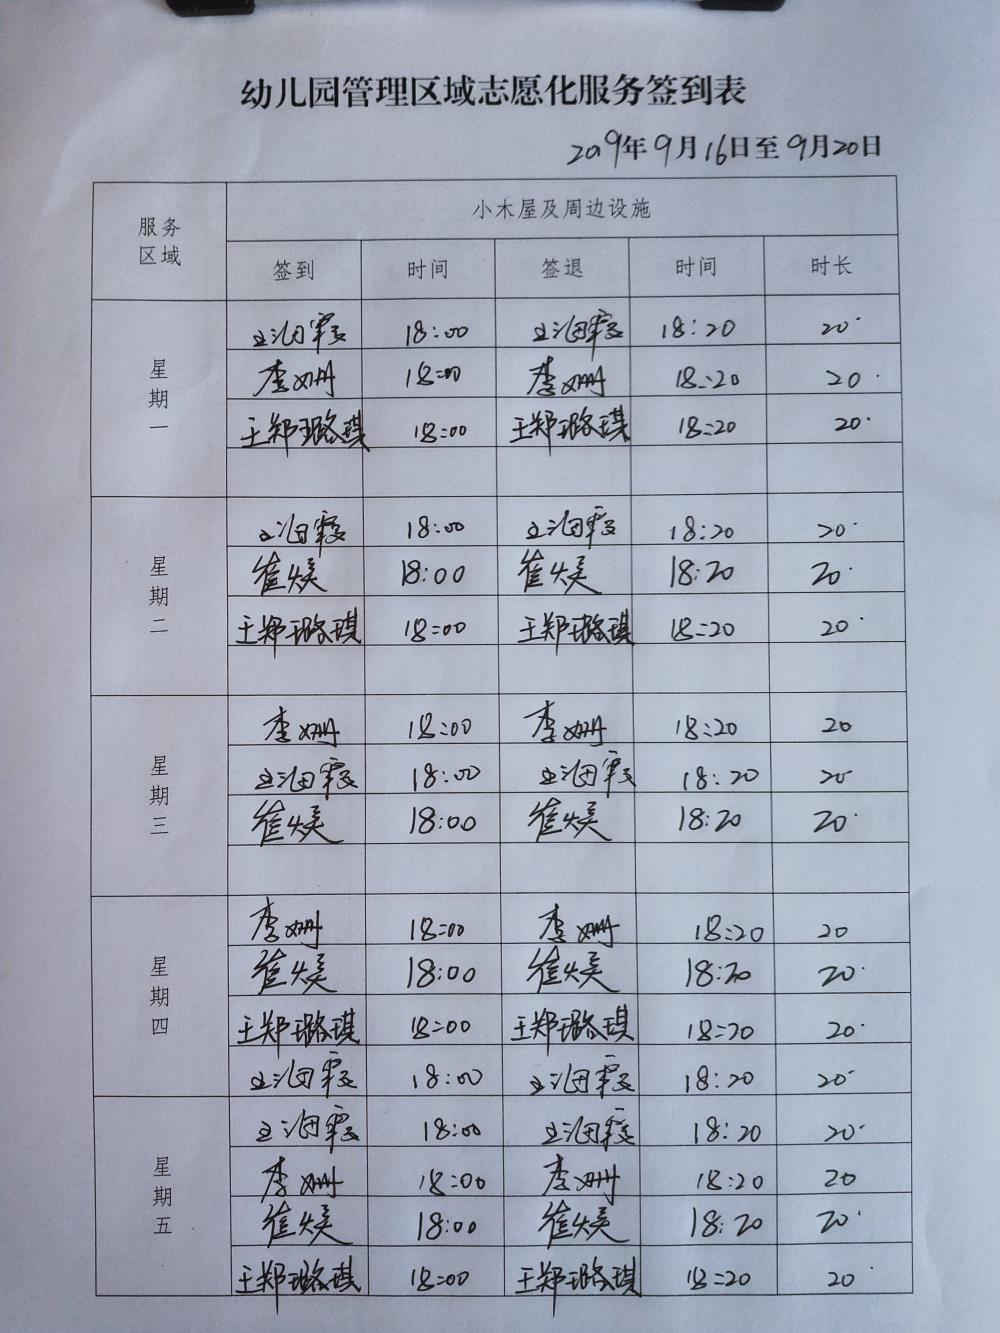 幼儿园管理区域志愿化服务签到表
2019年9月16日至9月20日
服务区域 小木屋及周边设施
签到 时间 签退 时间 时长
星期一
王海霞 18:00 王海霞 18:20 20
李姗 18:00 李姗 18:20 20
王郑璐琪 18:00 王郑璐琪 18:20 20
星期二
王海霞 18:00 王海霞 18:20 20
崔焕 18:00 崔焕 18:20 20
王郑璐琪 18:00 王郑璐琪 18:20 20
星期三
李姗 18:00 李姗 18:20 20
王海霞 18:00 王海霞 18:20 20
崔焕 18:00 崔焕 18:20 20
星期四
李姗 18:00 李姗 18:20 20
崔焕 18:00 崔焕 18:20 20
王郑璐琪 18:00 王郑璐琪 18:20 20
王海霞 18:00 王海霞 18:20 20
星期五
王海霞 18:00 王海霞 18:20 20
李姗 18:00 李姗 18:20 20
崔焕 18:00 崔焕 18:20 20
王郑璐琪 18:00 王郑璐琪 18:20 20